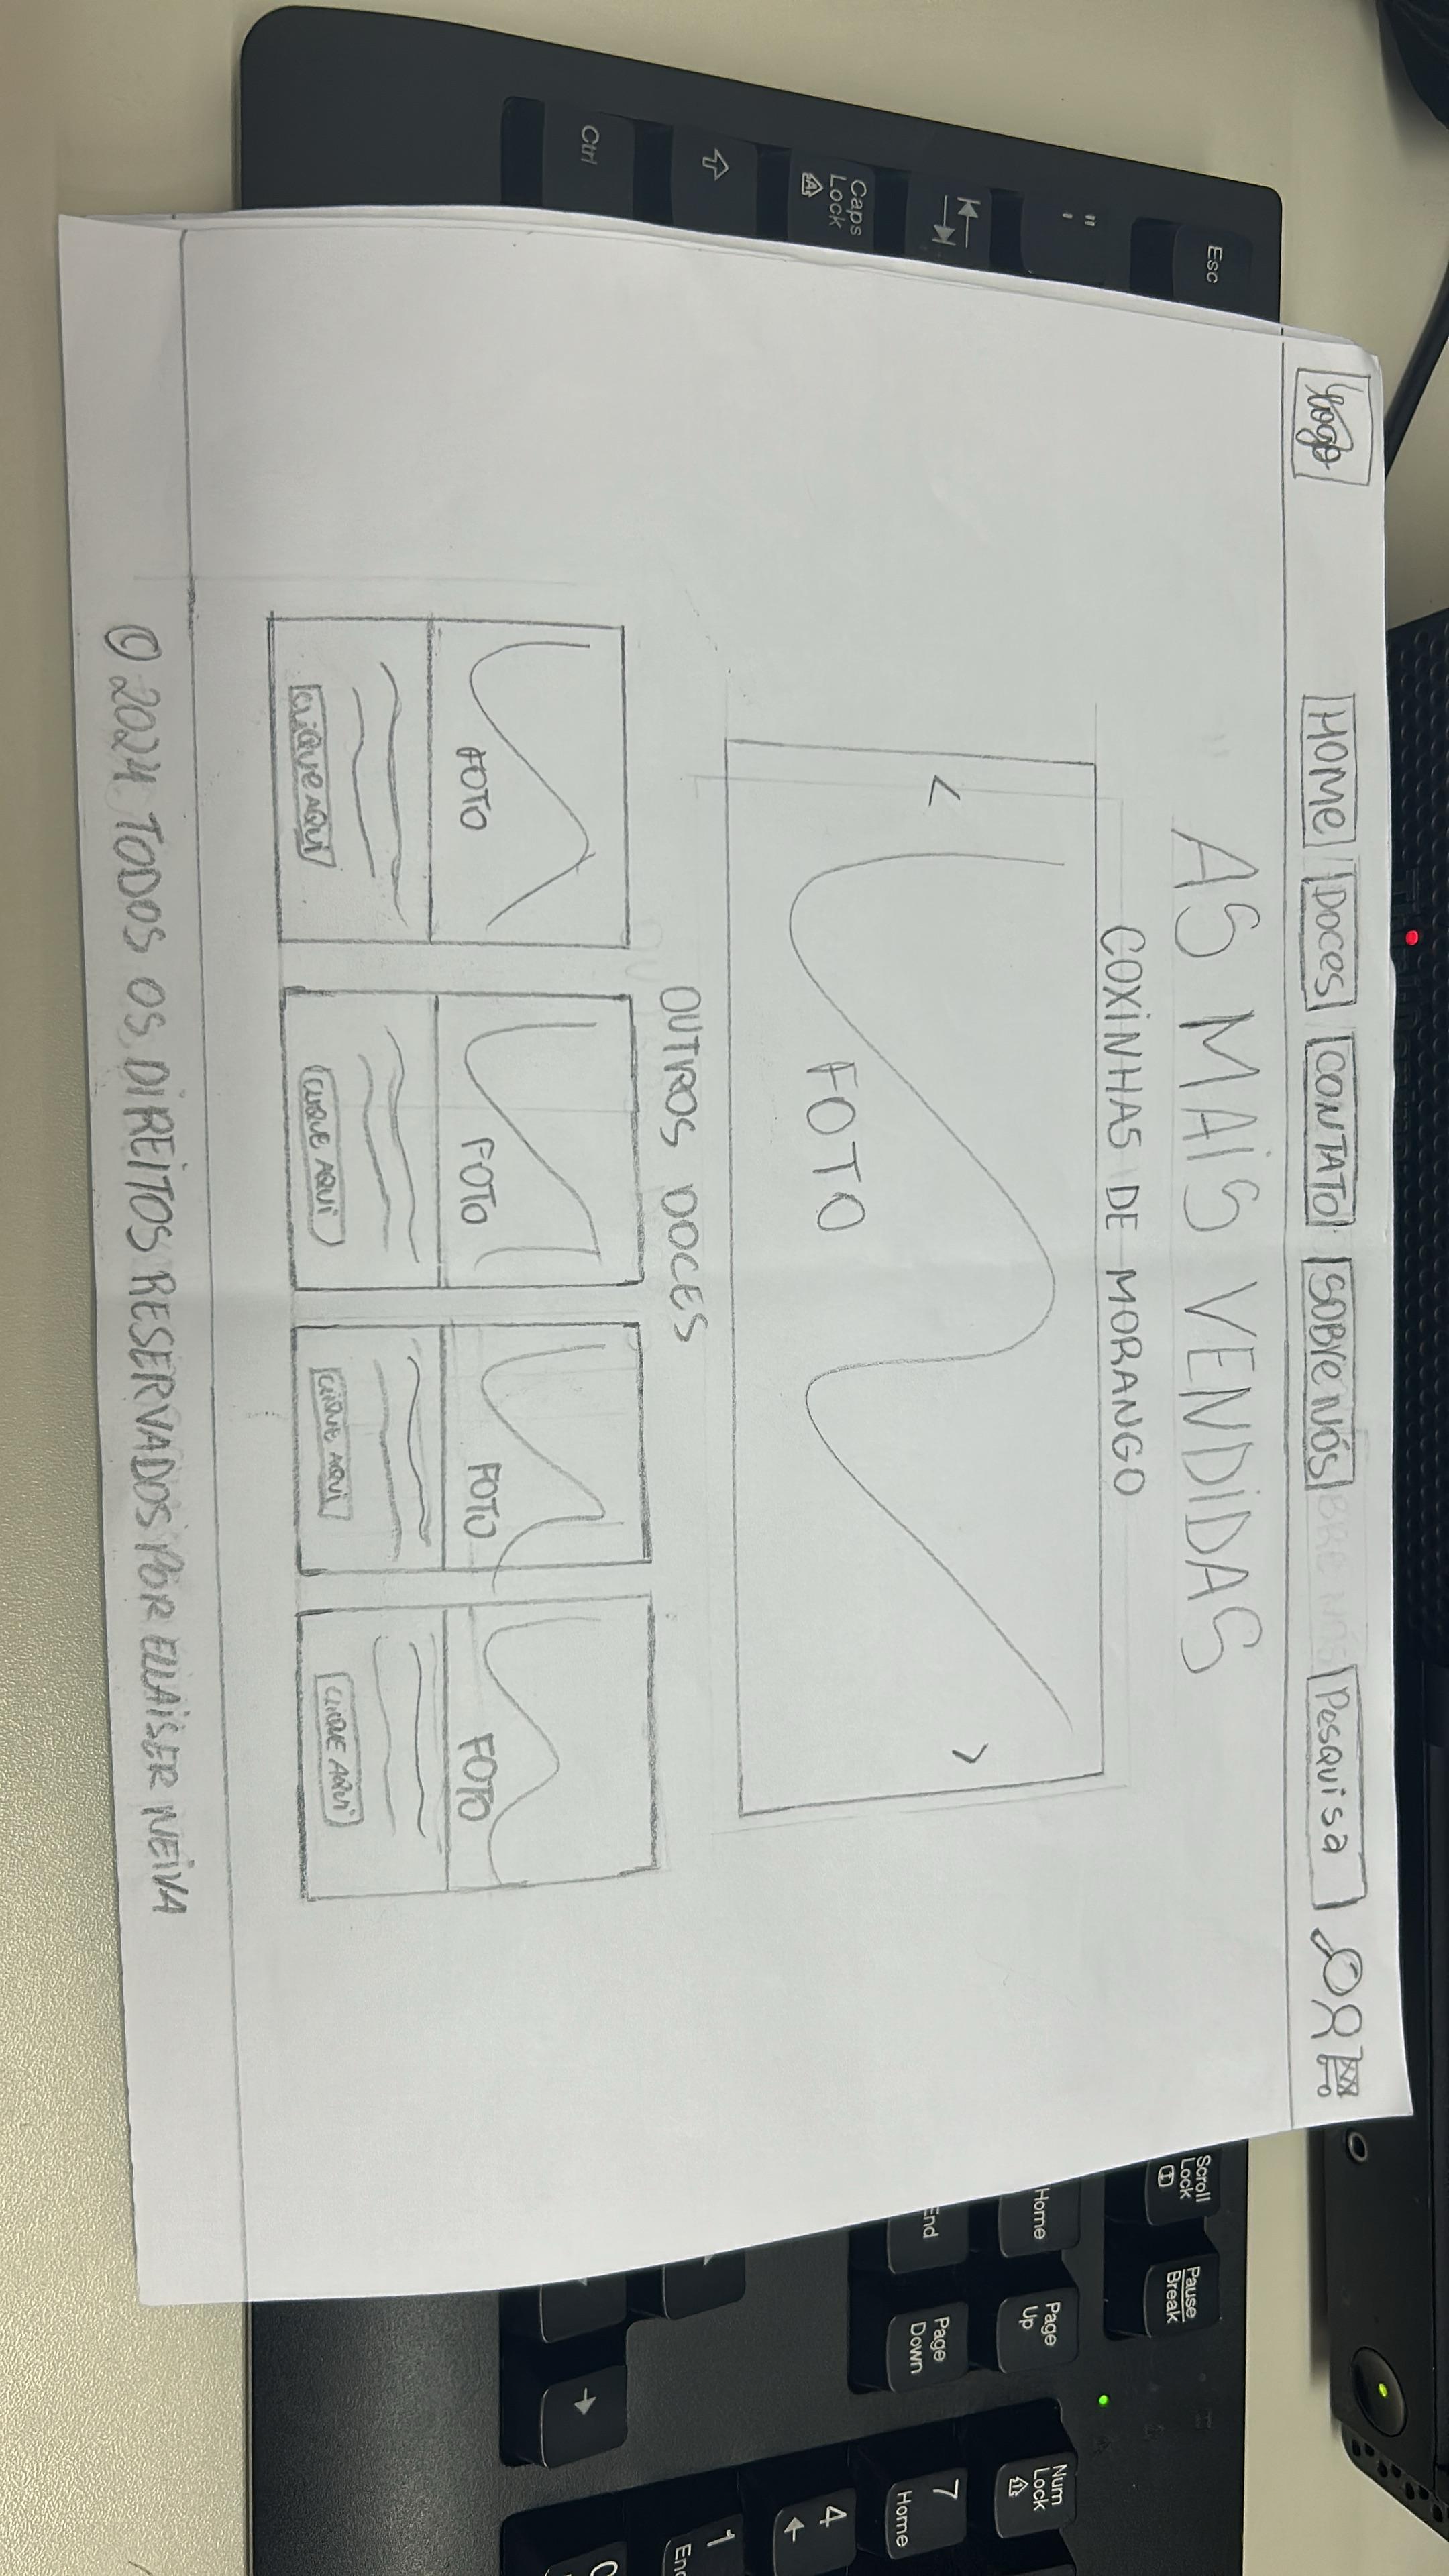 Logo HOME DOCES CONTATO SOBRE NÓS Pesquisa
AS MAIS VENDIDAS
COXINHAS DE MORANGO
< >
FOTO
OUTROS DOCES
FOTO FOTO FOTO FOTO
CLIQUE AQUI CLIQUE AQUI CLIQUE AQUI CLIQUE AQUI
© 2024 TODOS OS DIREITOS RESERVADOS POR ELAISER NEIVA
Esc
" '
Caps Lock
A
Ctrl
Scroll Lock
Pause Break
Home
Page Up
End
Page Down
Num Lock
7 Home
4
1 End
0